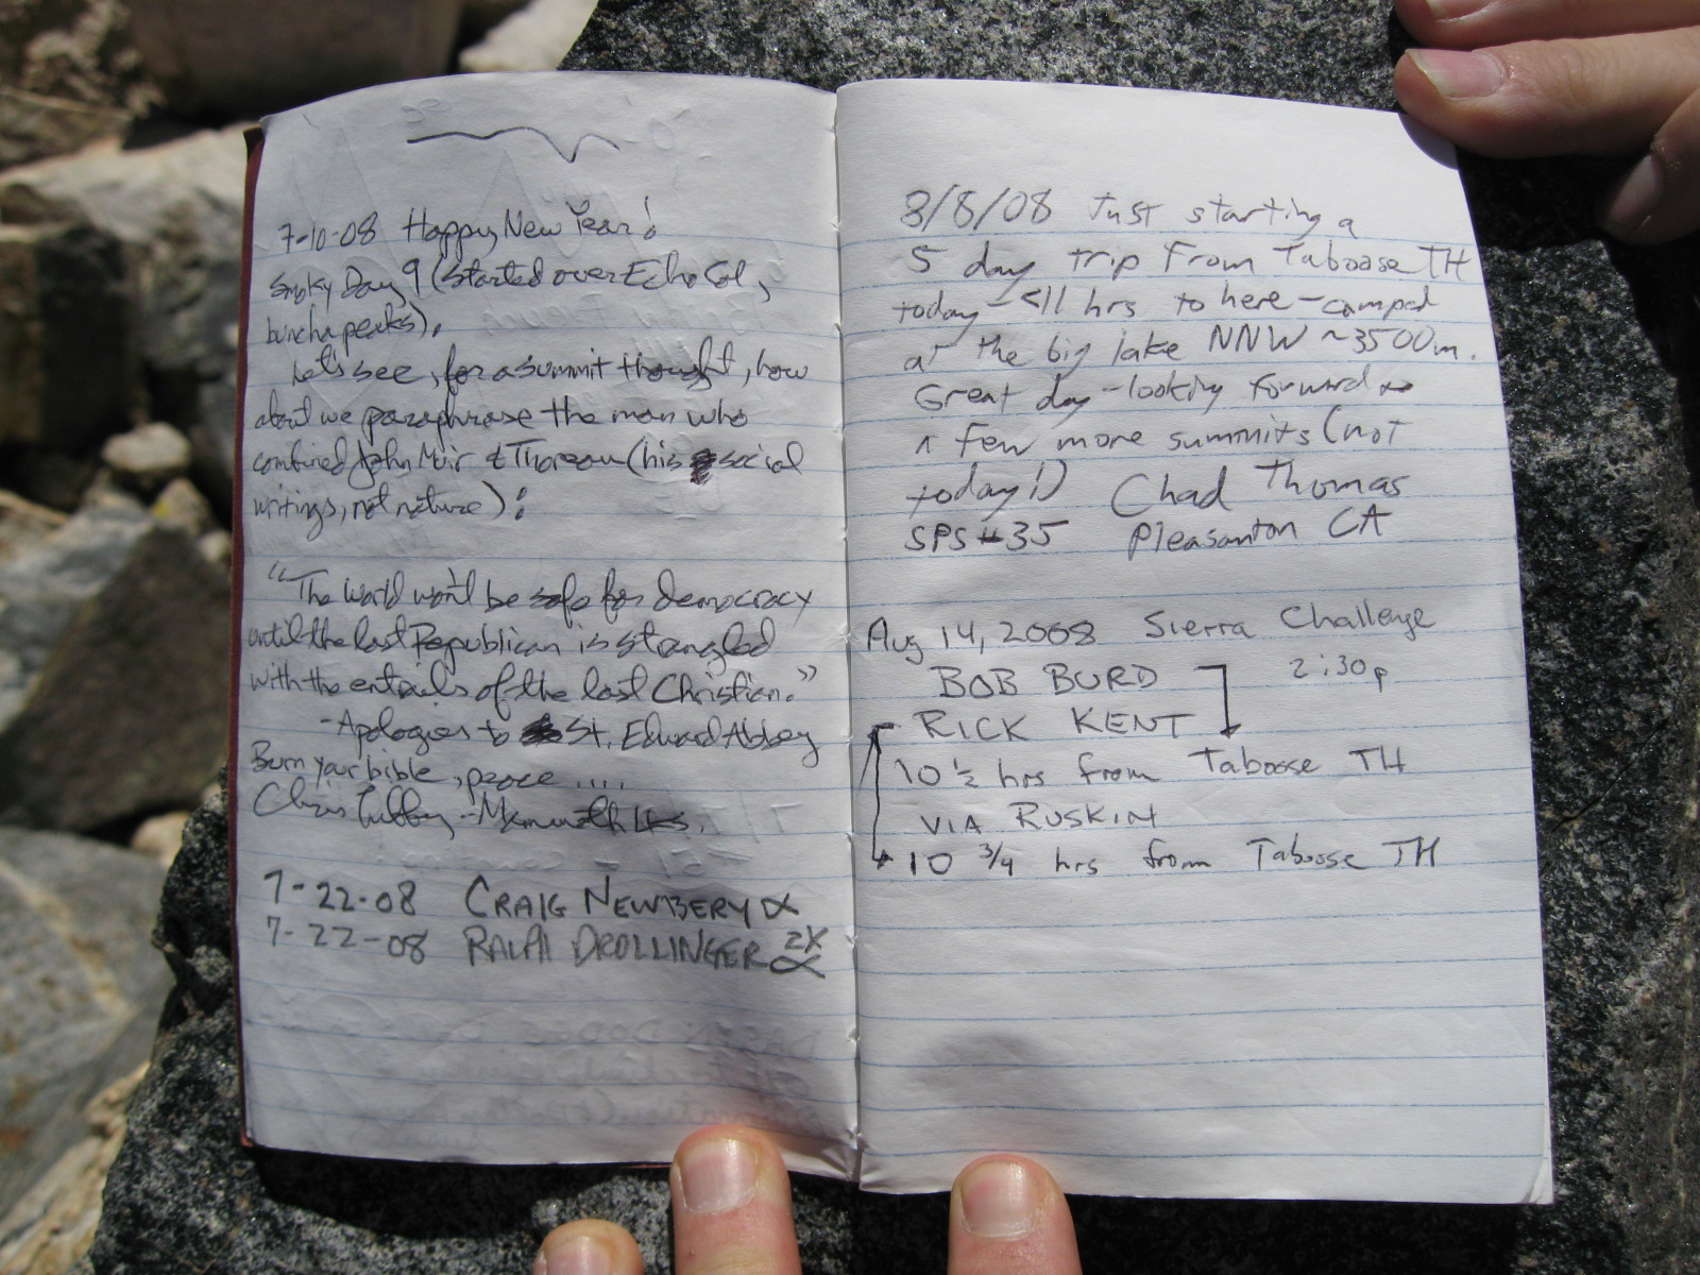 7-10-08 Happy New Year!
Smoky Day 9 (started over Echo Col,
buncha peaks).
Let's see, for a summit thought, how
about we paraphrase the man who
combined John Muir & Thoreau (his social
writings, not nature):
"The World won't be safe for democracy
until the last Republican is strangled
with the entrails of the last Christian."
-Apologies to St. Edward Abbey
Burn your bible, peace ....
Chris -Mammoth Lks.
7-22-08 CRAIG NEWBERY
7-22-08 RALPH DROLLINGER 2X
8/8/08 Just starting a
5 day trip From Taboose TH
today - <11 hrs to here - camped
at the big lake NNW ~3500m.
Great day - looking forward to
a few more summits (not
today!) Chad Thomas
SPS #35 Pleasanton CA
Aug 14, 2008 Sierra Challenge
BOB BURD 2:30p
RICK KENT
10 ½ hrs from Taboose TH
VIA RUSKIN
10 3/4 hrs from Taboose TH